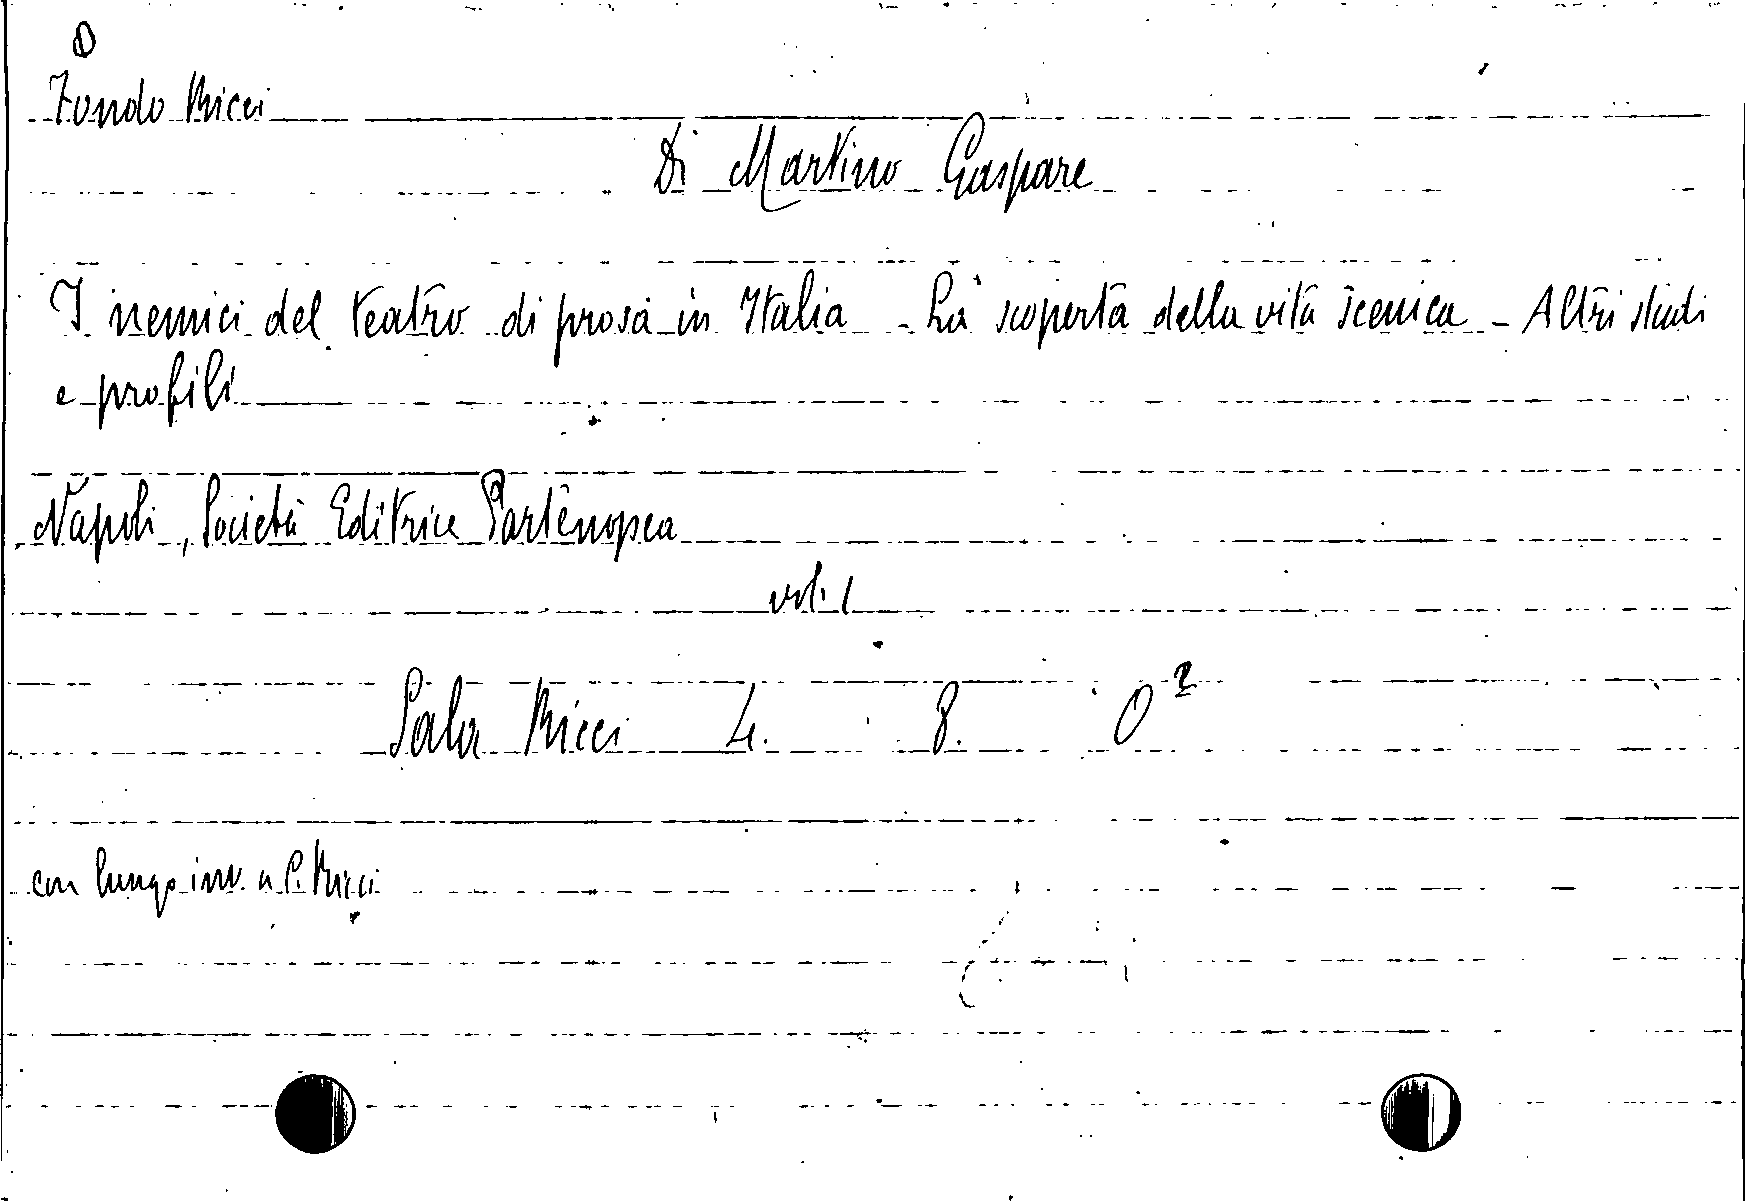 D
Fondo Ricci
Di Martino Gaspare
I nemici del teatro di prosa in Italia - La scoperta della vita scenica - Altri studi
e profili
Napoli, Società Editrice Partenopea
vol. 1
Sala Ricci 4. 8. O²
con lungo inv. a C. Ricci